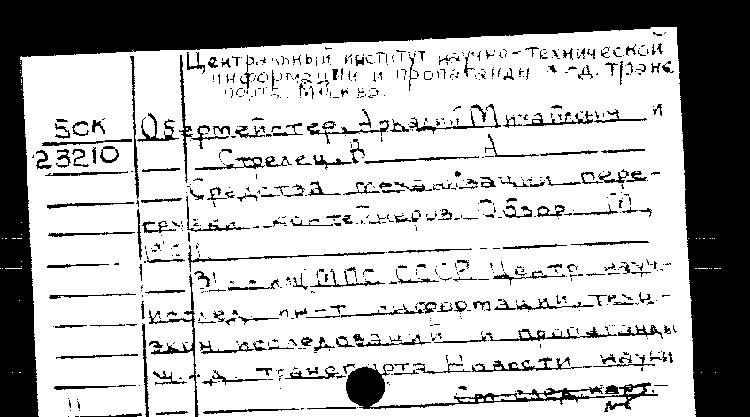 Центральный институт научно-технической
информации и пропаганды ж.-д. транс
порта. Москва.
БСК Обермейстер, Аркадий Михайлович и
23210 Стрелец, В А
Средства механизации пере-
грузки контейнеров. Обзор. М.,
МПС СССР. Центр. науч.-
исслед. ин-т информации, техн.-
экон. исследований и пропаганды
ж.-д. транспорта. Новости науки
См. след. карт.